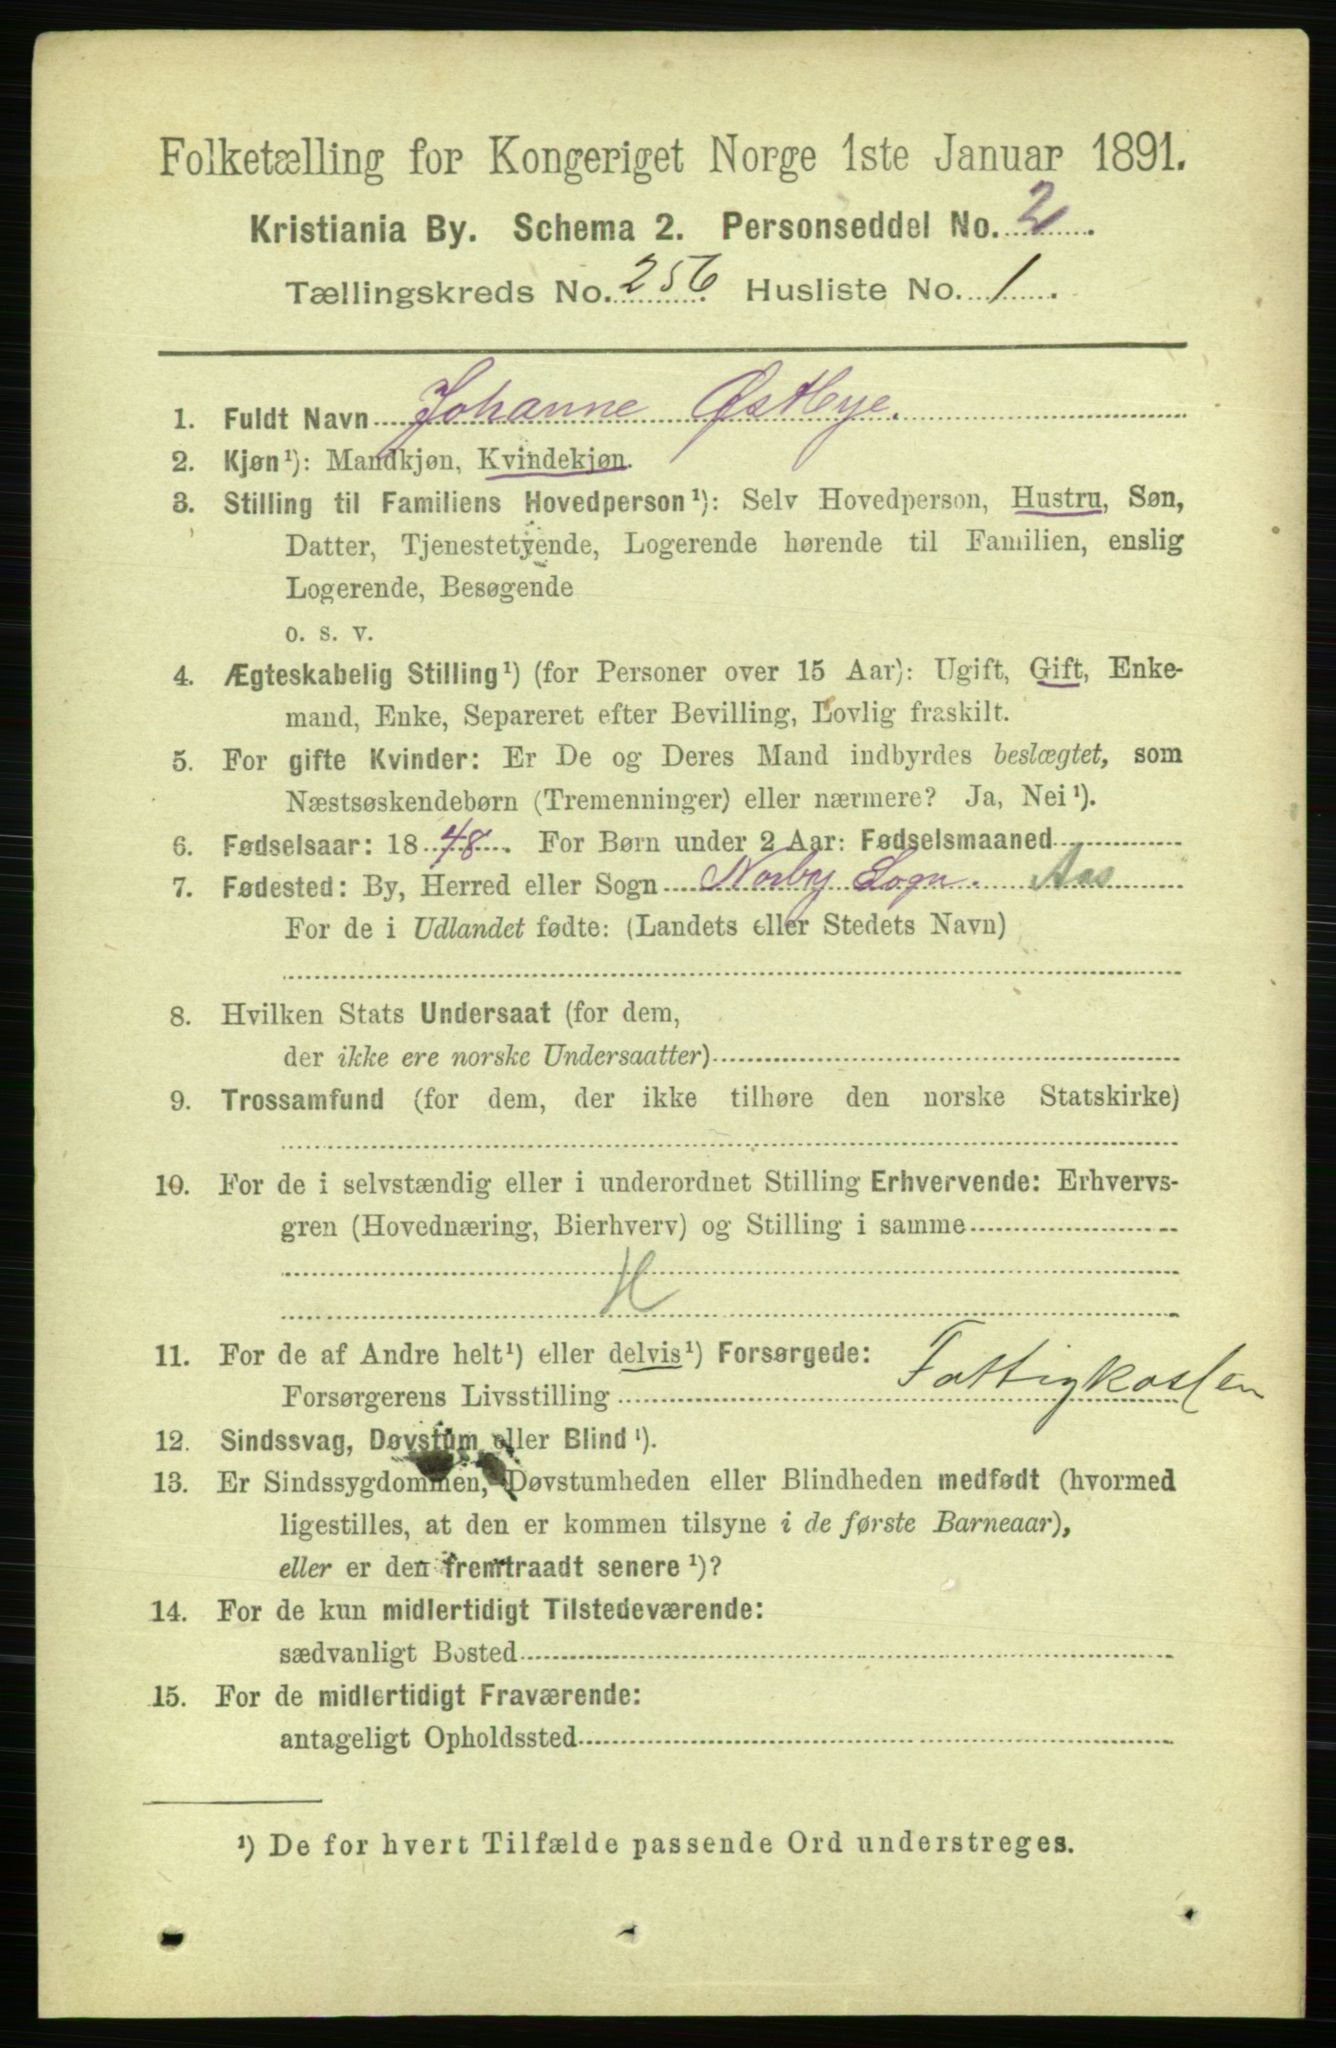 Folketælling for Kongeriget Norge 1ste Januar 1891.
Kristiania By. Schema 2. Personseddel No. 2.
Tællingskreds No. 256. Husliste No. 1.
1. Fuldt Navn Johanne Østbye.
2. Kjøn¹): Mandkjøn, Kvindekjøn.
3. Stilling til Familiens Hovedperson¹): Selv Hovedperson, Hustru, Søn,
Datter, Tjenestetyende, Logerende hørende til Familien, enslig
Logerende, Besøgende
o. s. v.
4. Ægteskabelig Stilling¹) (for Personer over 15 Aar): Ugift, Gift, Enke-
mand, Enke, Separeret efter Bevilling, Lovlig fraskilt.
5. For gifte Kvinder: Er De og Deres Mand indbyrdes beslægtet, som
Næstsøskendebørn (Tremenninger) eller nærmere? Ja, Nei¹).
6. Fødselsaar: 1848. For Børn under 2 Aar: Fødselsmaaned
7. Fødested: By, Herred eller Sogn Norby Sogn. Aas
For de i Udlandet fødte: (Landets eller Stedets Navn)
8. Hvilken Stats Undersaat (for dem,
der ikke ere norske Undersaatter)
9. Trossamfund (for dem, der ikke tilhøre den norske Statskirke)
10. For de i selvstændig eller i underordnet Stilling Erhvervende: Erhvervs-
gren (Hovednæring, Bierhverv) og Stilling i samme
H
11. For de af Andre helt¹) eller delvis¹) Forsørgede:
Forsørgerens Livsstilling Fattigkassen
12. Sindssvag, Døvstum eller Blind¹).
13. Er Sindssygdommen, Døvstumheden eller Blindheden medfødt (hvormed
ligestilles, at den er kommen tilsyne i de første Barneaar),
eller er den fremtraadt senere¹)?
14. For de kun midlertidigt Tilstedeværende:
sædvanligt Bosted
15. For de midlertidigt Fraværende:
antageligt Opholdssted
¹) De for hvert Tilfælde passende Ord understreges.